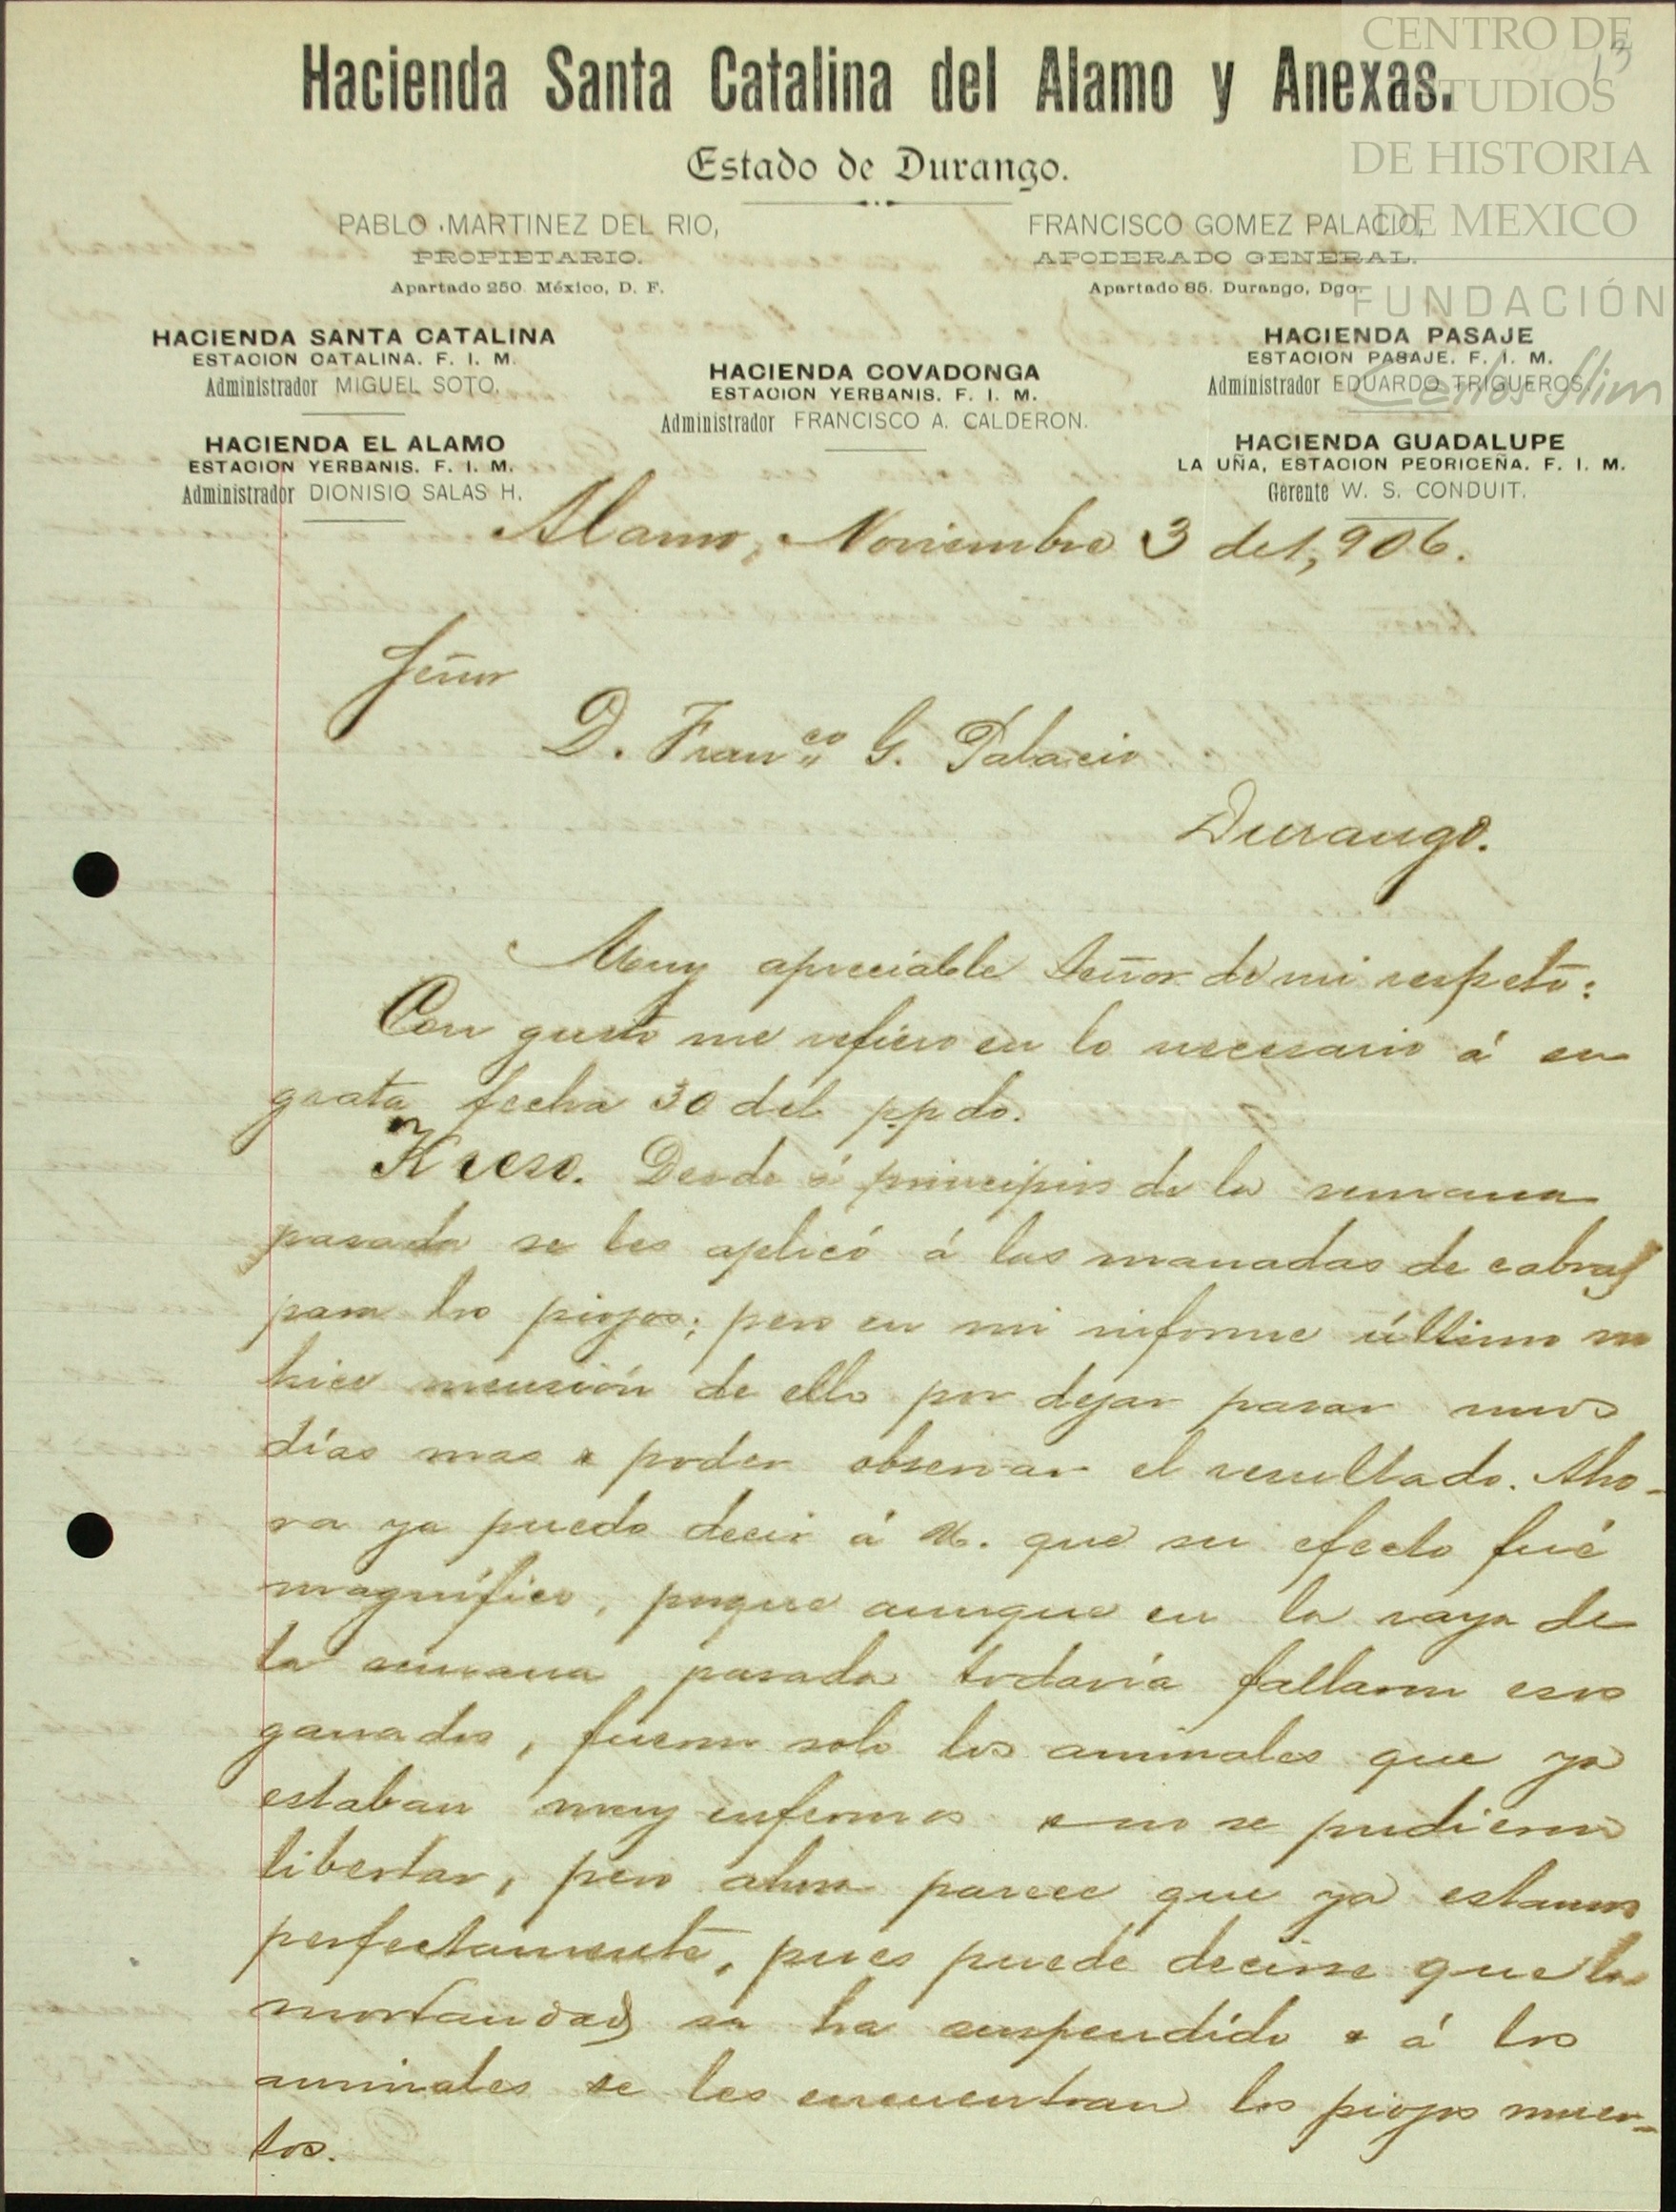 CENTRO DE
ESTUDIOS
DE HISTORIA
DE MEXICO
FUNDACIÓN
Carlos Slim
13
Hacienda Santa Catalina del Alamo y Anexas.
Estado de Durango.
PABLO MARTINEZ DEL RIO,
PROPIETARIO.
Apartado 250 México, D. F.
FRANCISCO GOMEZ PALACIO,
APODERADO GENERAL.
Apartado 85. Durango, Dgo.
HACIENDA SANTA CATALINA
ESTACION CATALINA. F. I. M.
Administrador MIGUEL SOTO.
HACIENDA EL ALAMO
ESTACION YERBANIS. F. I. M.
Administrador DIONISIO SALAS H.
HACIENDA COVADONGA
ESTACION YERBANIS. F. I. M.
Administrador FRANCISCO A. CALDERON.
HACIENDA PASAJE
ESTACION PASAJE. F. I. M.
Administrador EDUARDO TRIGUEROS.
HACIENDA GUADALUPE
LA UÑA, ESTACION PEDRICEÑA. F. I. M.
Gerente W. S. CONDUIT.
Alamo, Noviembre 3 de 1,906.
Señor
D. Fran.co G. Palacio
Durango.
Muy apreciable Señor de mi respeto:
Con gusto me refiero en lo necesario á su
grata fecha 30 del p.pdo.
Kreso. Desde á principios de la semana
pasada se les aplicó á las manadas de cabras
para los piojos; pero en mi informe último no
hice mención de ello por dejar pasar unos
días mas e poder observar el resultado. Aho-
ra ya puedo decir á U. que su efecto fué
magnífico, porque aunque en la raya de
la semana pasada todavía fallaron esos
ganados, fueron solo los animales que ya
estaban muy enfermos e no se pudieron
libertar, pero ahora parece que ya estamos
perfectamente, pues puede decirse que la
mortandad se ha suspendido e á los
animales se les encuentran los piojos muer-
tos.